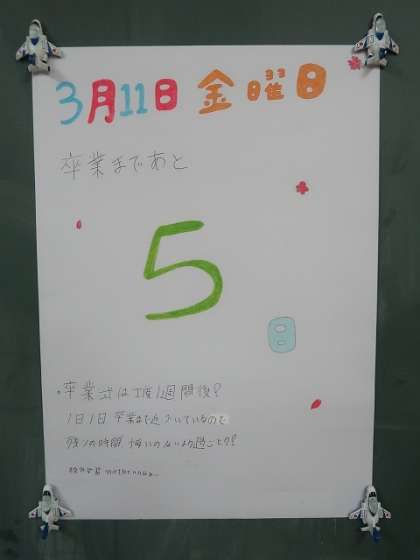 3月11日 金曜日
卒業まであと
5
日
・卒業式は丁度1週間後?
1日1日 卒業まで近づいているので
残りの時間 悔いのないよう過ごそう?